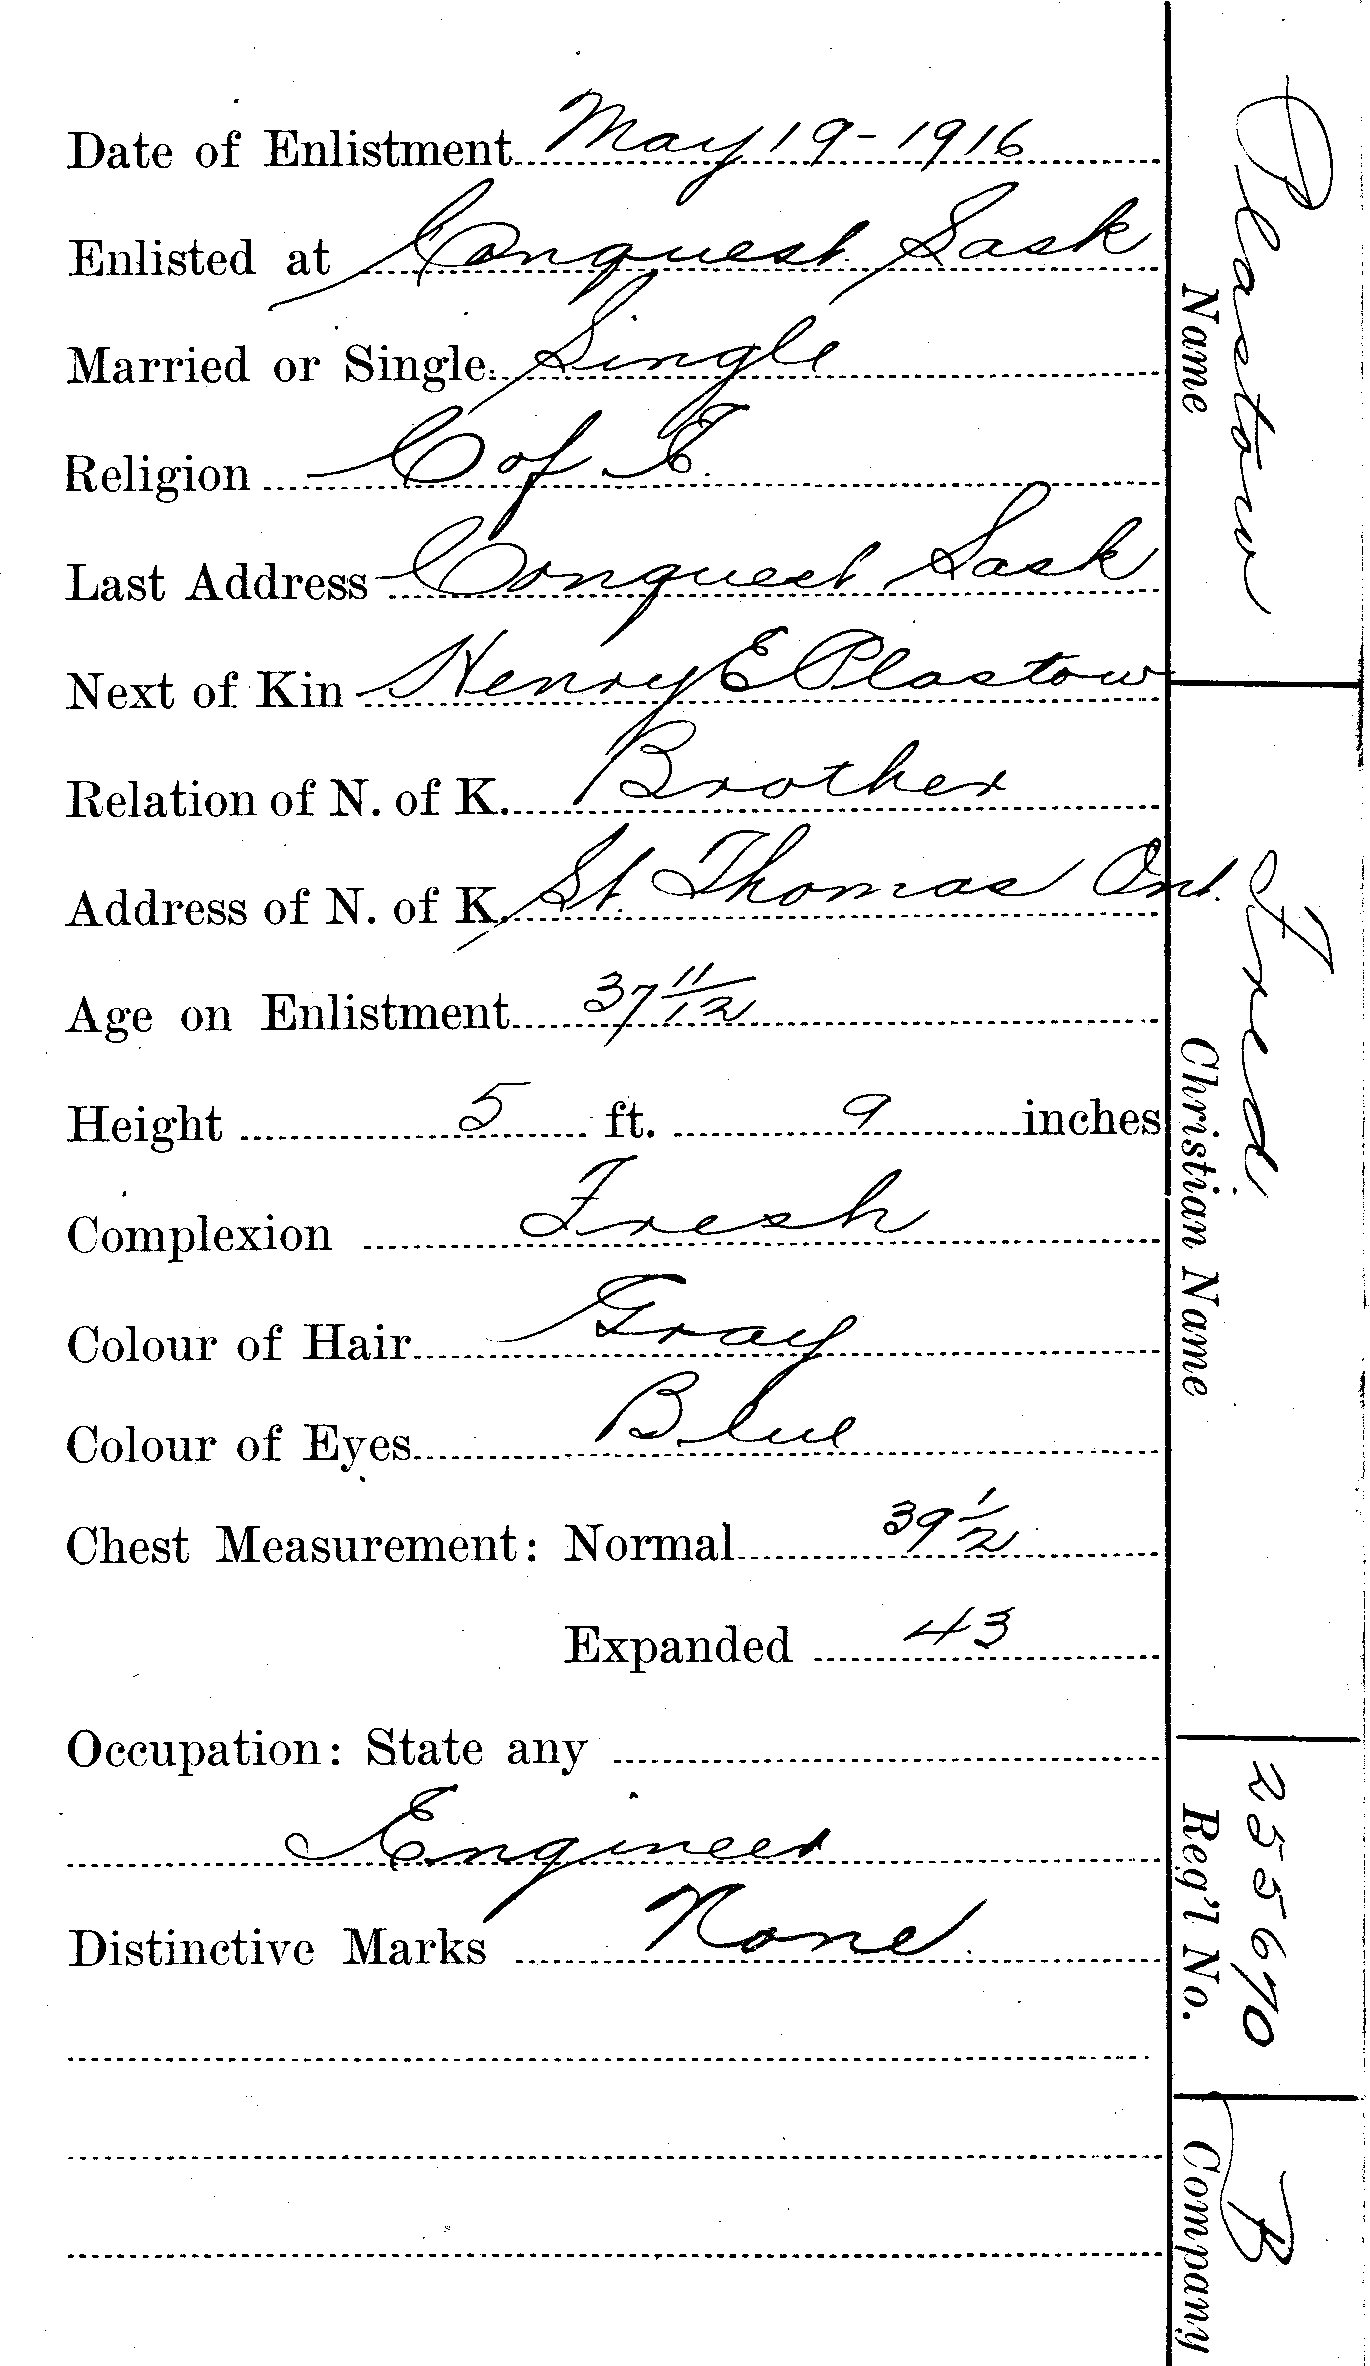 Date of Enlistment May 19 - 1916
Enlisted at Conquest. Sask
Married or Single. Single
Religion C of E.
Last Address Conquest Sask
Next of Kin Henry E Plastow
Relation of N. of K. Brother
Address of N. of K. St. Thomas Ont.
Age on Enlistment 37 11/12
Height 5 ft. 9 inches
Complexion Fresh
Colour of Hair Gray
Colour of Eyes Blue
Chest Measurement: Normal 39 1/2
Expanded 43
Occupation: State any
Engineer
Distinctive Marks None.
Plastow
Name
Fred.
Christian Name
255670
Reg'l No.
B
Company